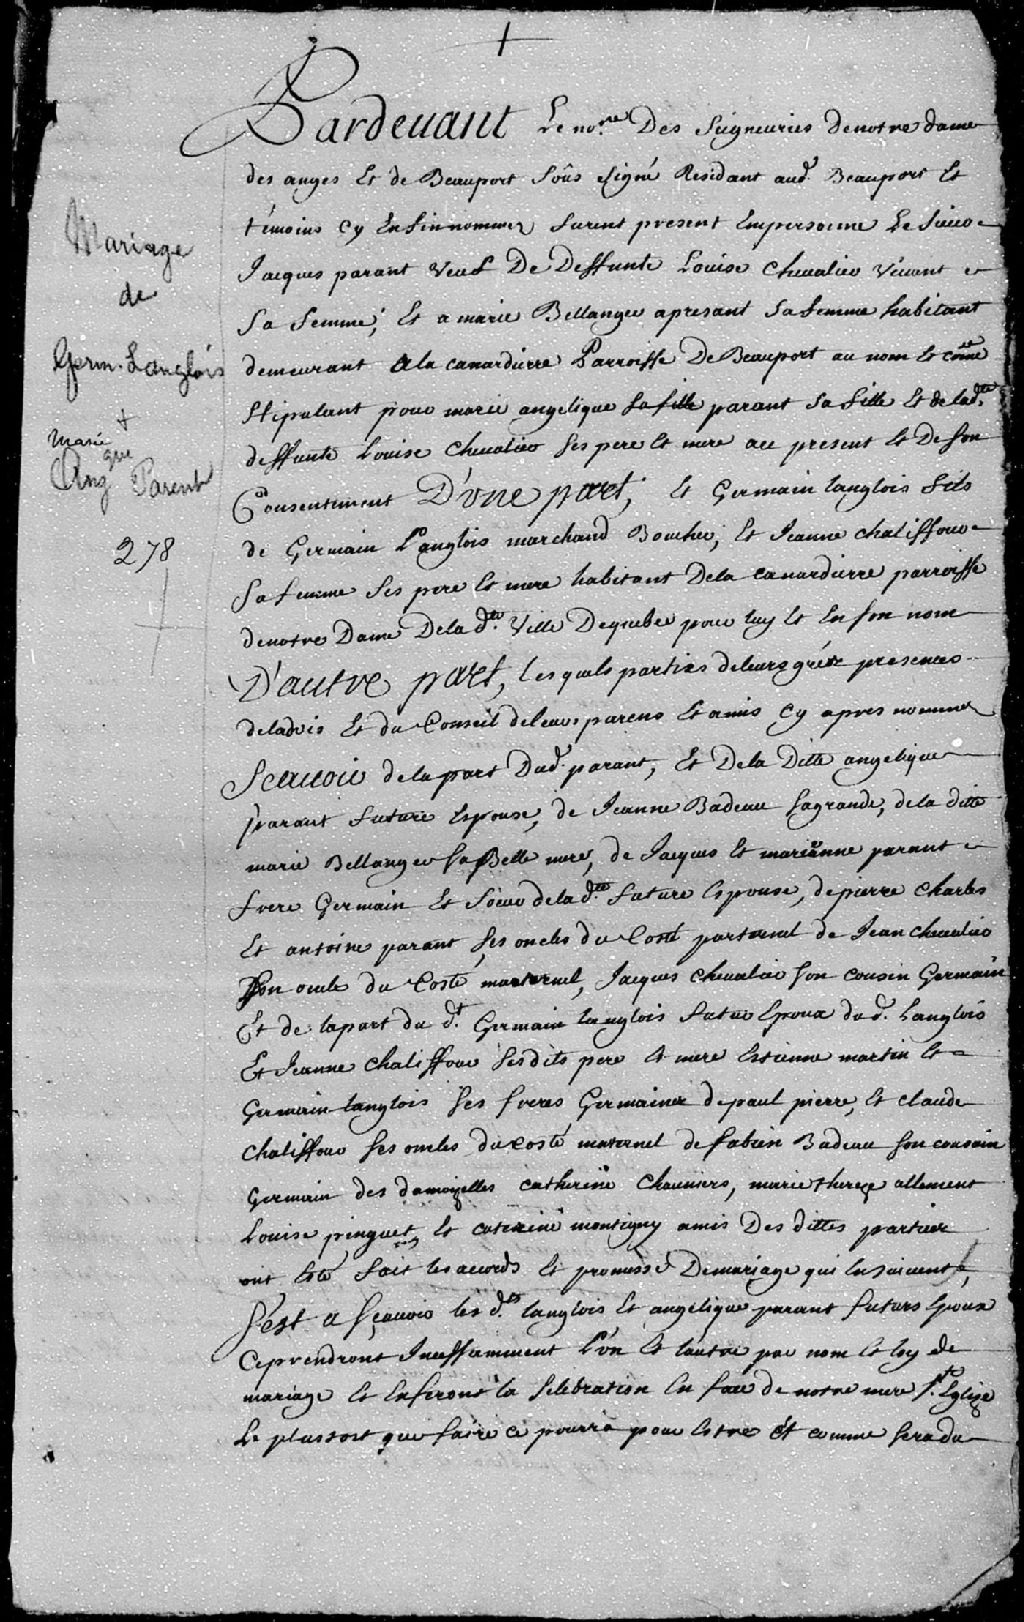 Pardevant Le no.re Des Seigneuries denotre dame
des anges Et de Beauport Soûs signé Residant aud. Beauport Et
témoins cy Enfin nommez furent present Enpersonne Le Sieur
Jacques parant Veuf De Deffunte Louise Chevalier Vivant
Sa femme; Et a marie Bellanger apresant Sa femme habitant
demeurant Ala canardiere Parroisse De Beauport au nom Et coñe
Stipulant pour marie angelique Safille parant Sa fille Et delad.te
deffunte Louise Chevalier Ses pere Et mere ace present Et De Son
Consentement D'une part; Et Germain langlois fils
de Germain Langlois marchand Boucher; Et Jeanne chaliffour
Sa femme Ses pere Et mere habitant Dela canardierre parroisse
denotre Dame Delad.te Ville Dequebec pour luy Et En son nom
D'autre part, lesquels parties deleurs gréez presences
deladvis Et du Conseil deleurs parens Et amis Cy apres nommez
Scavoir delapart Dud. parant, Et Dela Ditte angelique
parant future Espouse, de Jeanne Badeau Sagrande, dela ditte
marie Bellanger Sa Belle mere, de Jacques Et marianne parant
frere Germain Et Soeur delad.te future Espouse, depierre Charles
Et antoine parant, Ses oncles du Costé parternel de Jean chevalier
Son oncle du Costé marternel, Jacques Chevalier Son cousin Germain
Et de lapart du d.t Germain langlois futur Epoux dud. Langlois
Et Jeanne Chaliffour Sesdits pere Et mere Estienne martin Et
Germain langlois Ses freres Germaines depaul pierre, Et claude
Chaliffour Ses oncles ducosté maternel de fabien Badeau Son cousin
Germain des damoizelles catherine Chauniers, marie thereze allement
Louise pinguet Et caterine montigny amis Des dittes parties
ont Esté fait les acords Et promesse Demariage qui Ensuivent,
S'est a Sçavoir les d.ts langlois Et angelique parant futurs Epoux
Ceprendront Incessamment L'un Et lautre par nom Et loy de
mariage Et Enferont la Selebration En face de notre mere S.te Eglize
Le plustost que faire ce pourra pour Estre Et comme Seradu
Mariage
de
Germ. Langlois
+
Marie
que
Ang Parent
278